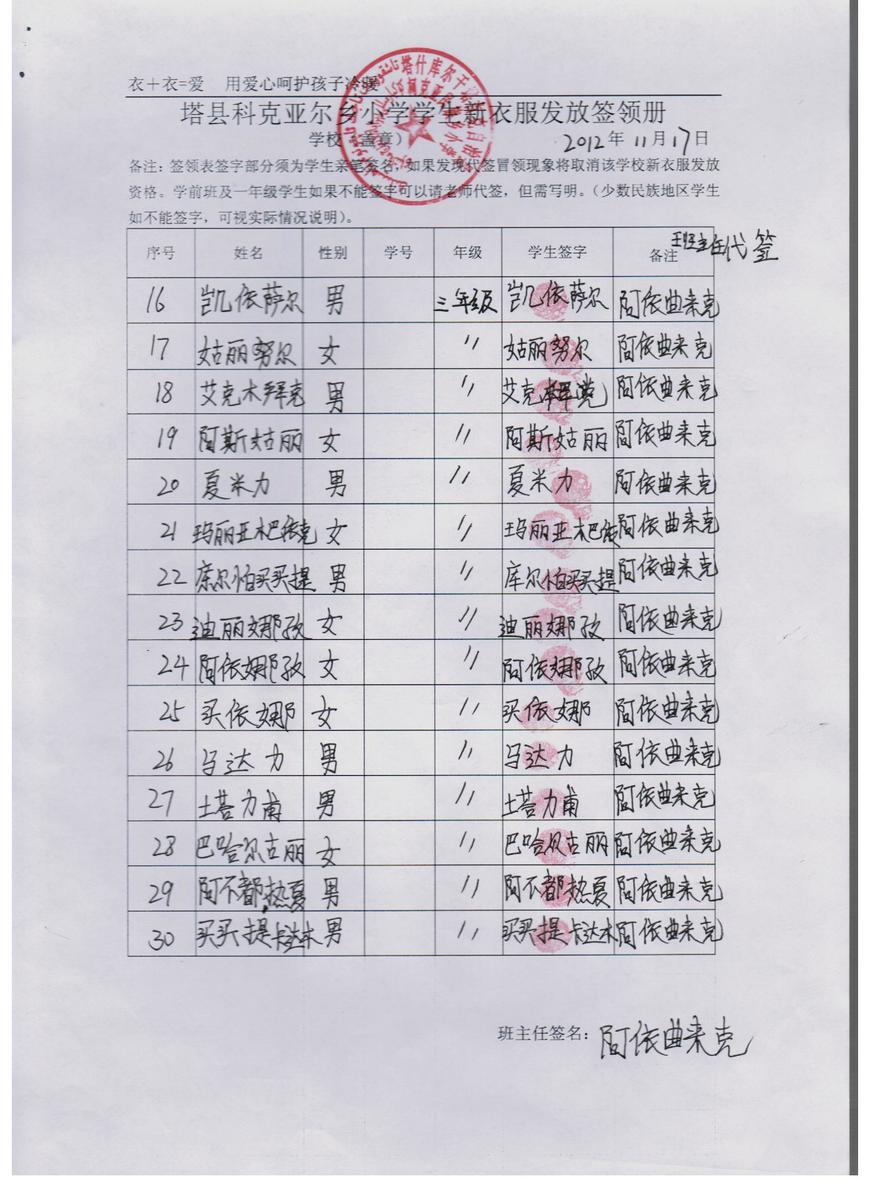 衣＋衣=爱 用爱心呵护孩子冷暖
塔县科克亚尔乡小学学生新衣服发放签领册
学校（盖章） 2012年11月17日
备注：签领表签字部分须为学生亲笔签名，如果发现代签冒领现象将取消该学校新衣服发放
资格。学前班及一年级学生如果不能签字可以请老师代签，但需写明。（少数民族地区学生
如不能签字，可视实际情况说明）。
序号 姓名 性别 学号 年级 学生签字 备注 班主任代签
16 凯依萨尔 男 三年级 凯依萨尔 阿依曲来克
17 姑丽努尔 女 〃 姑丽努尔 阿依曲来克
18 艾克木拜克 男 〃 艾克 阿依曲来克
19 阿斯姑丽 女 〃 阿斯姑丽 阿依曲来克
20 夏米力 男 〃 夏米力 阿依曲来克
21 玛丽亚木巴依克 女 〃 玛丽亚木巴依 阿依曲来克
22 库尔怕买买提 男 〃 库尔怕买买提 阿依曲来克
23 迪丽娜孜 女 〃 迪丽娜孜 阿依曲来克
24 阿依娜孜 女 〃 阿依娜孜 阿依曲来克
25 买依娜 女 〃 买依娜 阿依曲来克
26 马达力 男 〃 马达力 阿依曲来克
27 土塔力甫 男 〃 土塔力甫 阿依曲来克
28 巴哈尔古丽 女 〃 巴哈尔古丽 阿依曲来克
29 阿不都热夏 男 〃 阿不都热夏 阿依曲来克
30 买买提卡达木 男 〃 买买提卡达木 阿依曲来克
班主任签名：阿依曲来克